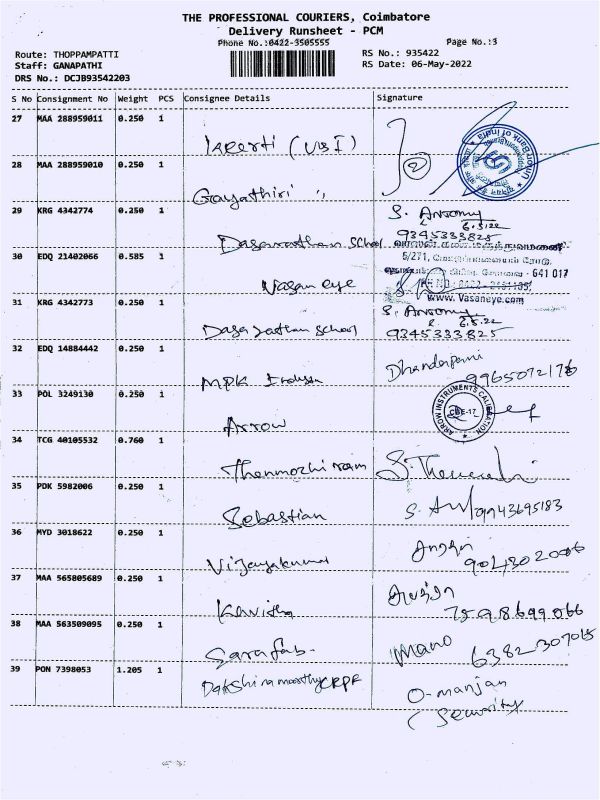 THE PROFESSIONAL COURIERS, Coimbatore
Delivery Runsheet - PCM
Phone No.:0422-3505555
Page No.:3
Route: THOPPAMPATTI
RS No.: 935422
Staff: GANAPATHI
RS Date: 06-May-2022
DRS No.: DCJB93542203
S No Consignment No Weight PCS Consignee Details Signature
27 MAA 288959011 0.250 1
Keerti (UBI)
28 MAA 288959010 0.250 1
Gayathiri "
29 KRG 4342774 0.250 1
S. Antony
6.5.22
9345333825
Dasarathan School
30 EDQ 21402066 0.585 1
5/271,
641 017
Vasan eye
www.Vasaneye.com
31 KRG 4342773 0.250 1
S. Antony
6.5.22
Dasarathan School 9345333825
32 EDQ 14884442 0.250 1
Dhandapani
9965072176
MPK
33 POL 3249130 0.250 1
ARROW INSTRUMENTS CALIBRATION
CBE-17
Arrow
34 TCG 40105532 0.760 1
Thenmozhi ram
35 PDK 5982006 0.250 1
9943695183
Sebastian
36 MYD 3018622 0.250 1
Vijayakumar
37 MAA 565805689 0.250 1
7598699066
Kavistha
38 MAA 563509095 0.250 1
Mano
6382307015
39 PON 7398053 1.205 1
Dakshinamoorthy CRPF
O-manjan
(Security